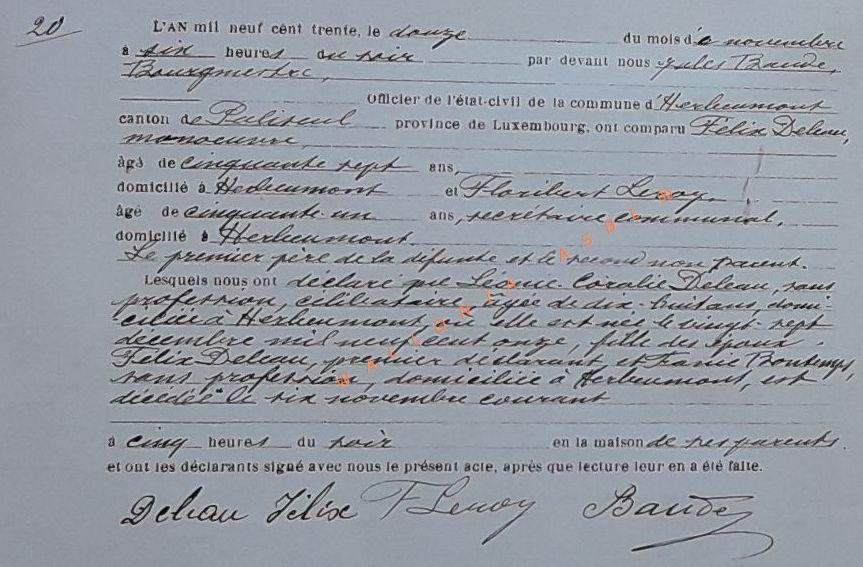 20
L'AN mil neuf cent trente, le douze du mois de novembre
à six heures du soir par devant nous Jules Baude,
Bourgmestre,
Officier de l'état-civil de la commune d'Herbeumont
canton de Paliseul province de Luxembourg, ont comparu Félix Deleau,
manoeuvre,
âgé de cinquante sept ans,
domicilié à Herbeumont et Floribert Leroy,
âgé de cinquante-un ans, secrétaire communal,
domicilié à Herbeumont.
Le premier père de la défunte et le second non parent.
Lesquels nous ont déclaré que Coralie Deleau, sans
profession, célibataire, âgée de dix-huit ans, domi-
ciliée à Herbeumont où elle est née le vingt-sept
décembre mil neuf cent onze, fille des époux
Félix Deleau, premier déclarant et Fanie Bontemps,
sans profession, domiciliée à Herbeumont, est
décédée le six novembre courant
à cinq heures du soir en la maison de ses parents.
et ont les déclarants signé avec nous le présent acte, après que lecture leur en a été faite.
Deleau Félix F Leroy Baude
WALLONIA ASBL